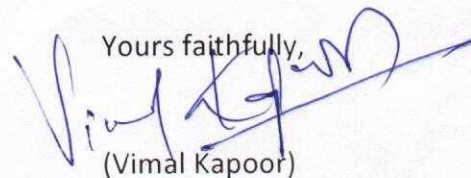 Yours faithfully,
Vimal Kapoor
(Vimal Kapoor)